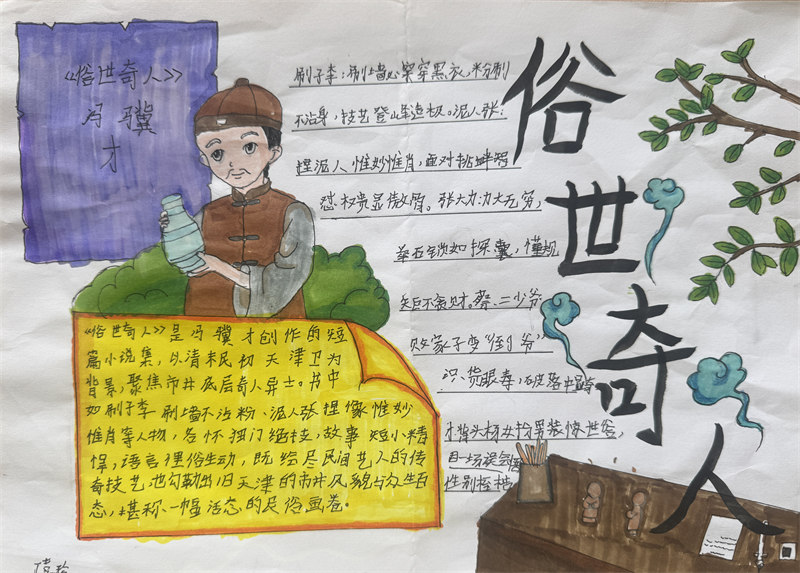 《俗世奇人》
冯骥
才
俗世奇人
刷子李:刷墙必穿黑衣,粉刷
不沾身,技艺登山至造极。泥人张:
捏泥人惟妙惟肖,面对挑衅
怼权贵显傲骨。张大力:力大无穷,
举石锁如探囊,懂规
矩不贪财。蔡二少爷:
败家子变“倒爷”
识货眼毒,破落中
才
女扮男装惊世俗,
性别桎梏
《俗世奇人》是冯骥才创作的短
篇小说集,以清末民初天津卫为
背景,聚焦市井底层奇人异士。书中
如刷子李刷墙不沾粉、泥人张捏像惟妙
惟肖等人物,各怀独门绝技,故事短小精
悍,语言俚俗生动,既绘尽民间艺人的传
奇技艺,也勾勒出旧天津的市井风貌与众生百
态,堪称一幅活态的民俗画卷。